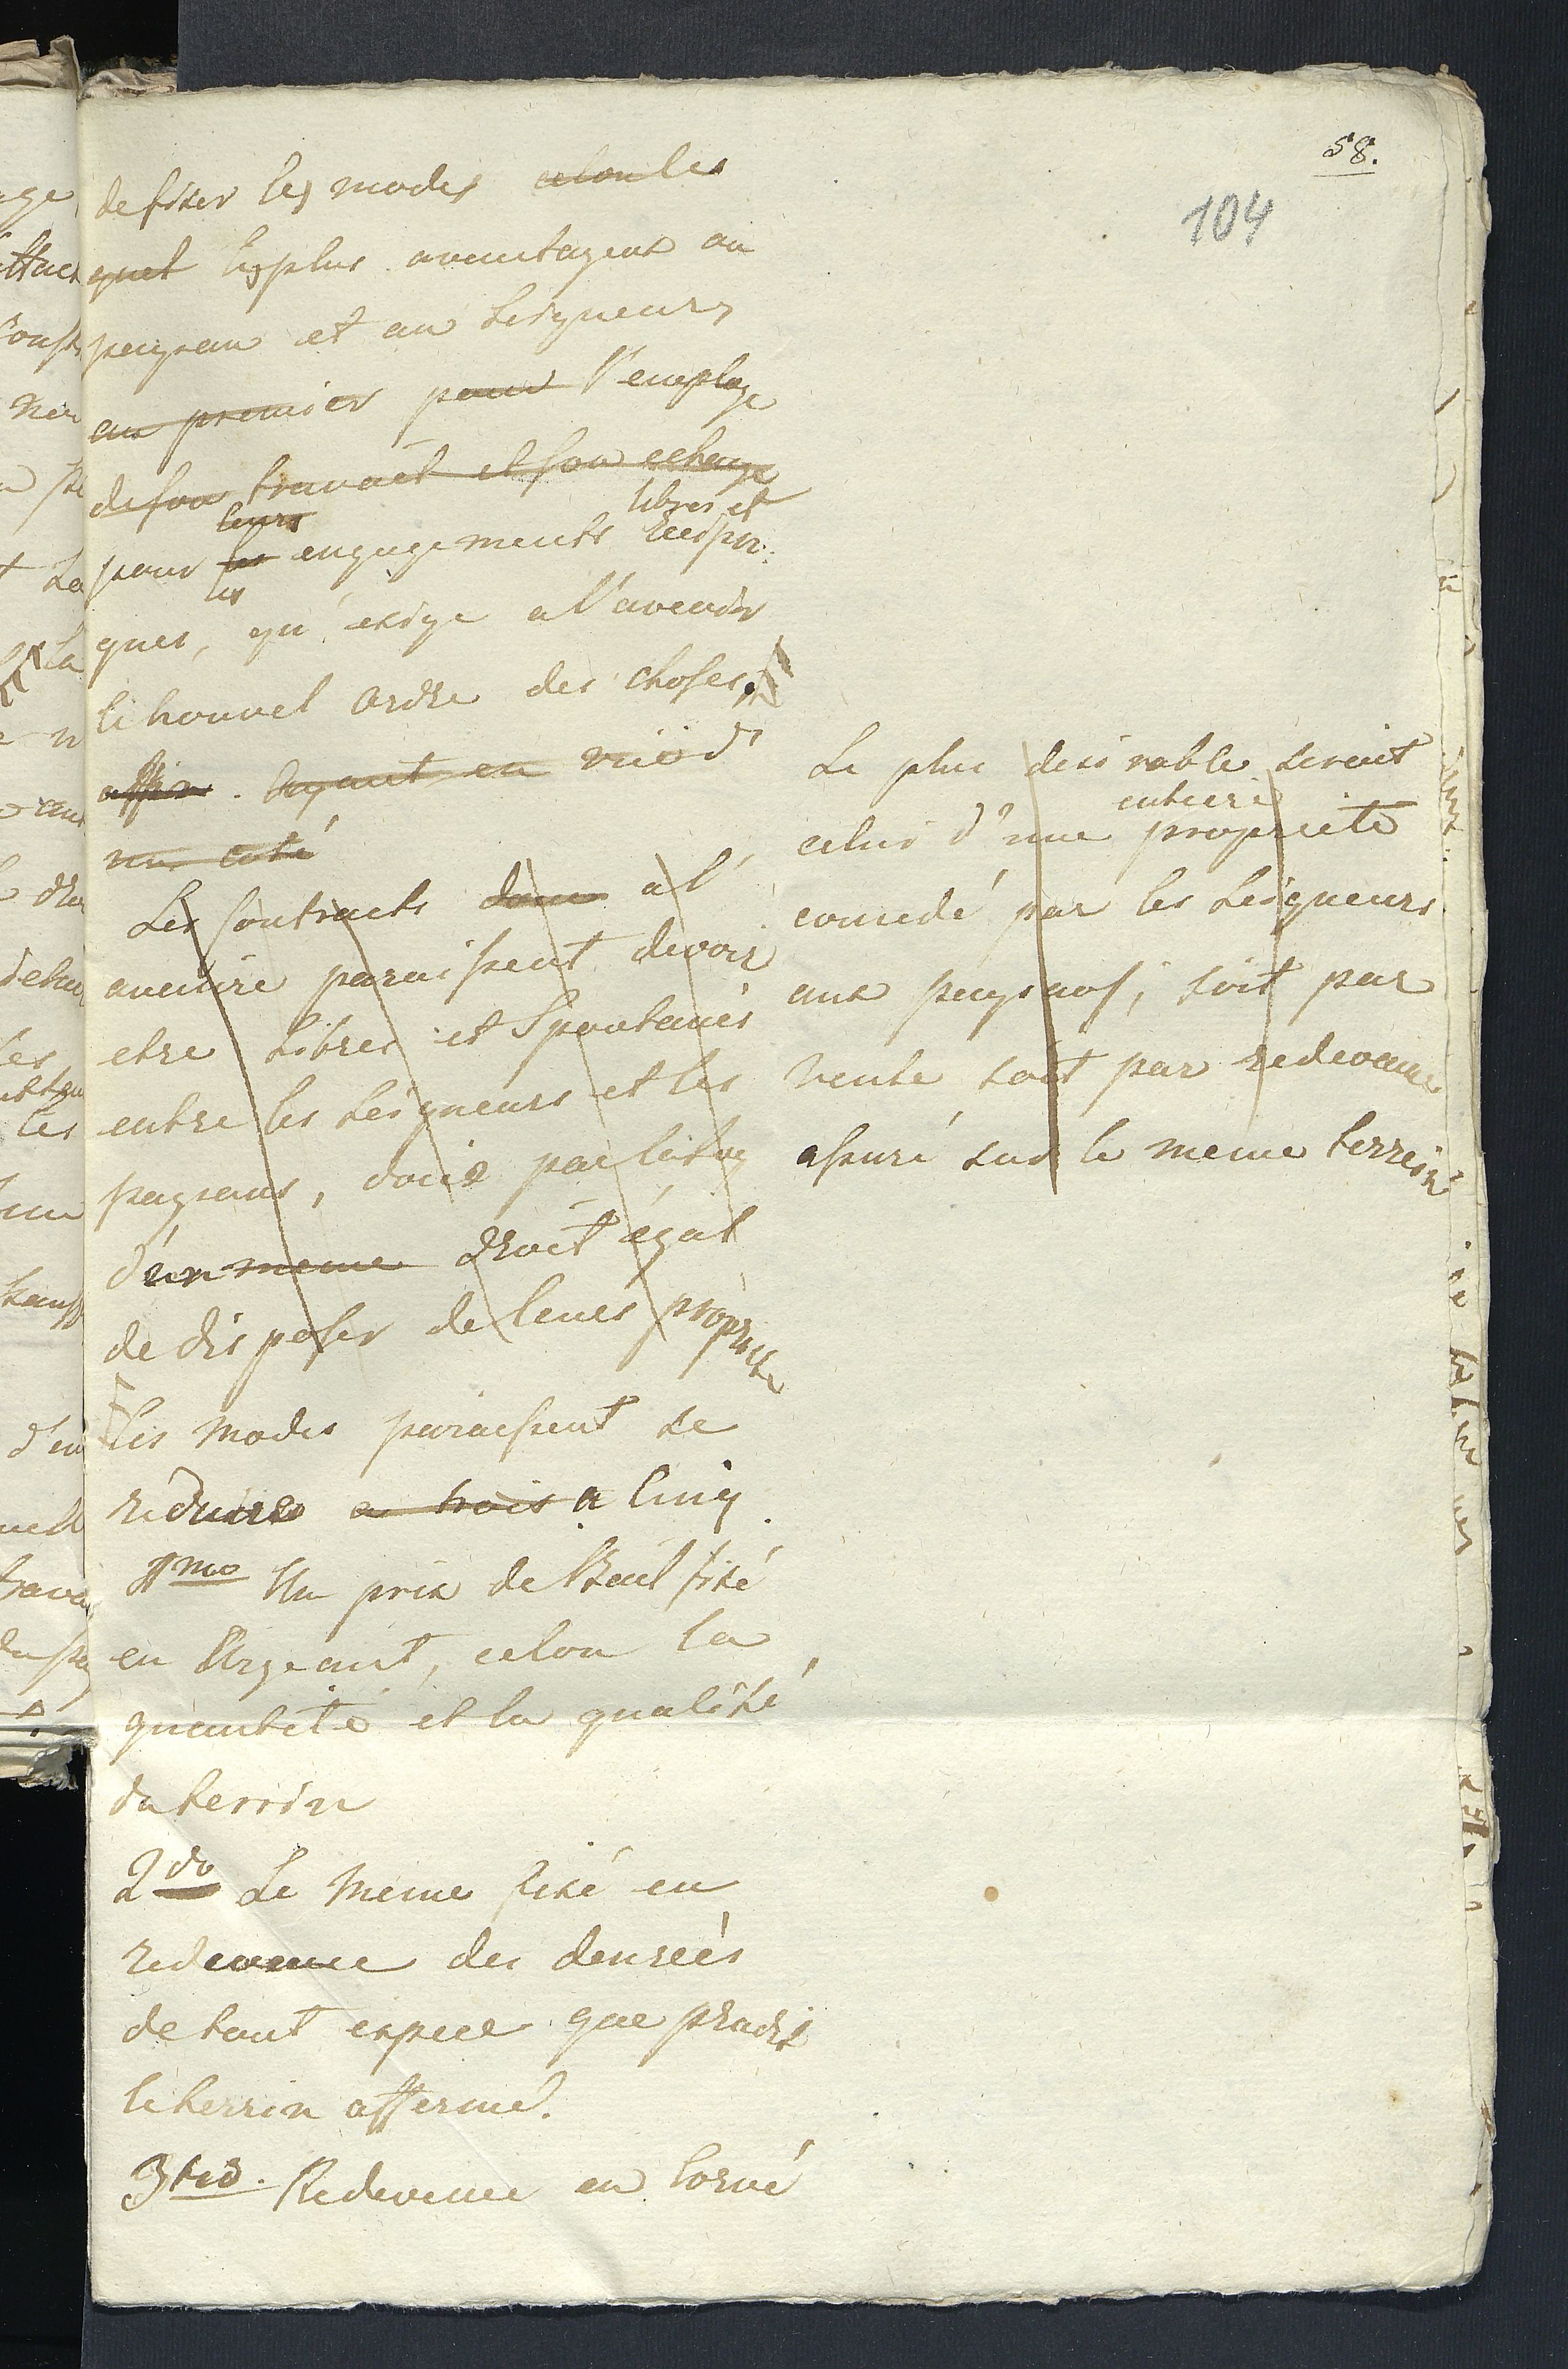 58.
104
de fixer les modes celon les
quel les plus avantageux au
paysan et au Seigneur,
au premier pour l'employe
de son travail et son echange
leurs libres et
pour ses engagements recipro:
les
ques, qu'exige a l'avenir
le nouvel ordre des choses.
affin. Ayant en vüë d'
un coté
Les Contracts dans a l'
avenire paraissent devoir
etre libres et Spontanés
entre les Seigneurs et les
paysans, doué par l'etat
d'un meme droit égal
de disposer de leurs propriete
Les modes paraissent se
reduire a trois a Cinq.
1mo Un prix de Bail fixé
en Argeant, celon la
quantité et la qualité
du terrin
2do Le meme fixé en
redevence des denreés
de tout espece que produit
le terrin affermé.
3tio. Redevence en Corvé
Le plus desirable seroit
entiere
celui d'une propriete
concedé par les Seigneurs
aux paysans, soit par
vente soit par redevance
assuré sur le meme terrein